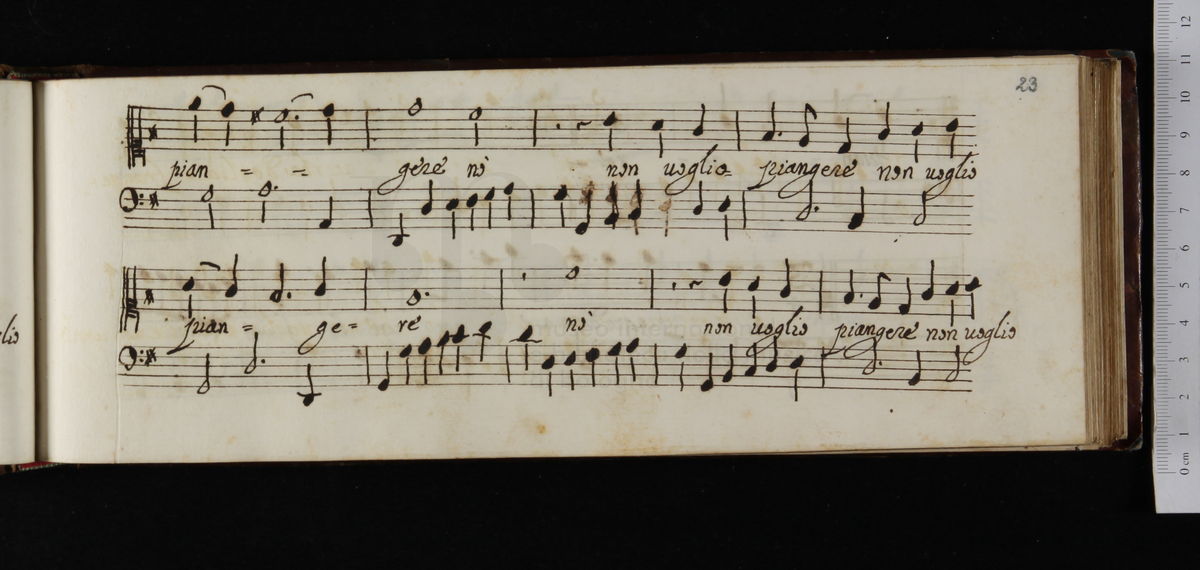 23
pian = = gere nò non uoglio= piangere non uoglio
pian= ge= re nò non uoglio piangere non uoglio
glio
0 cm 1 2 3 4 5 6 7 8 9 10 11 12